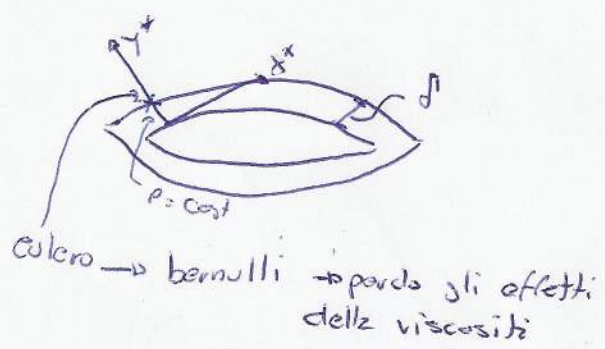 Y*
X*
δ
P = cost
eulero → bernulli → perdo gli effetti
della viscosità